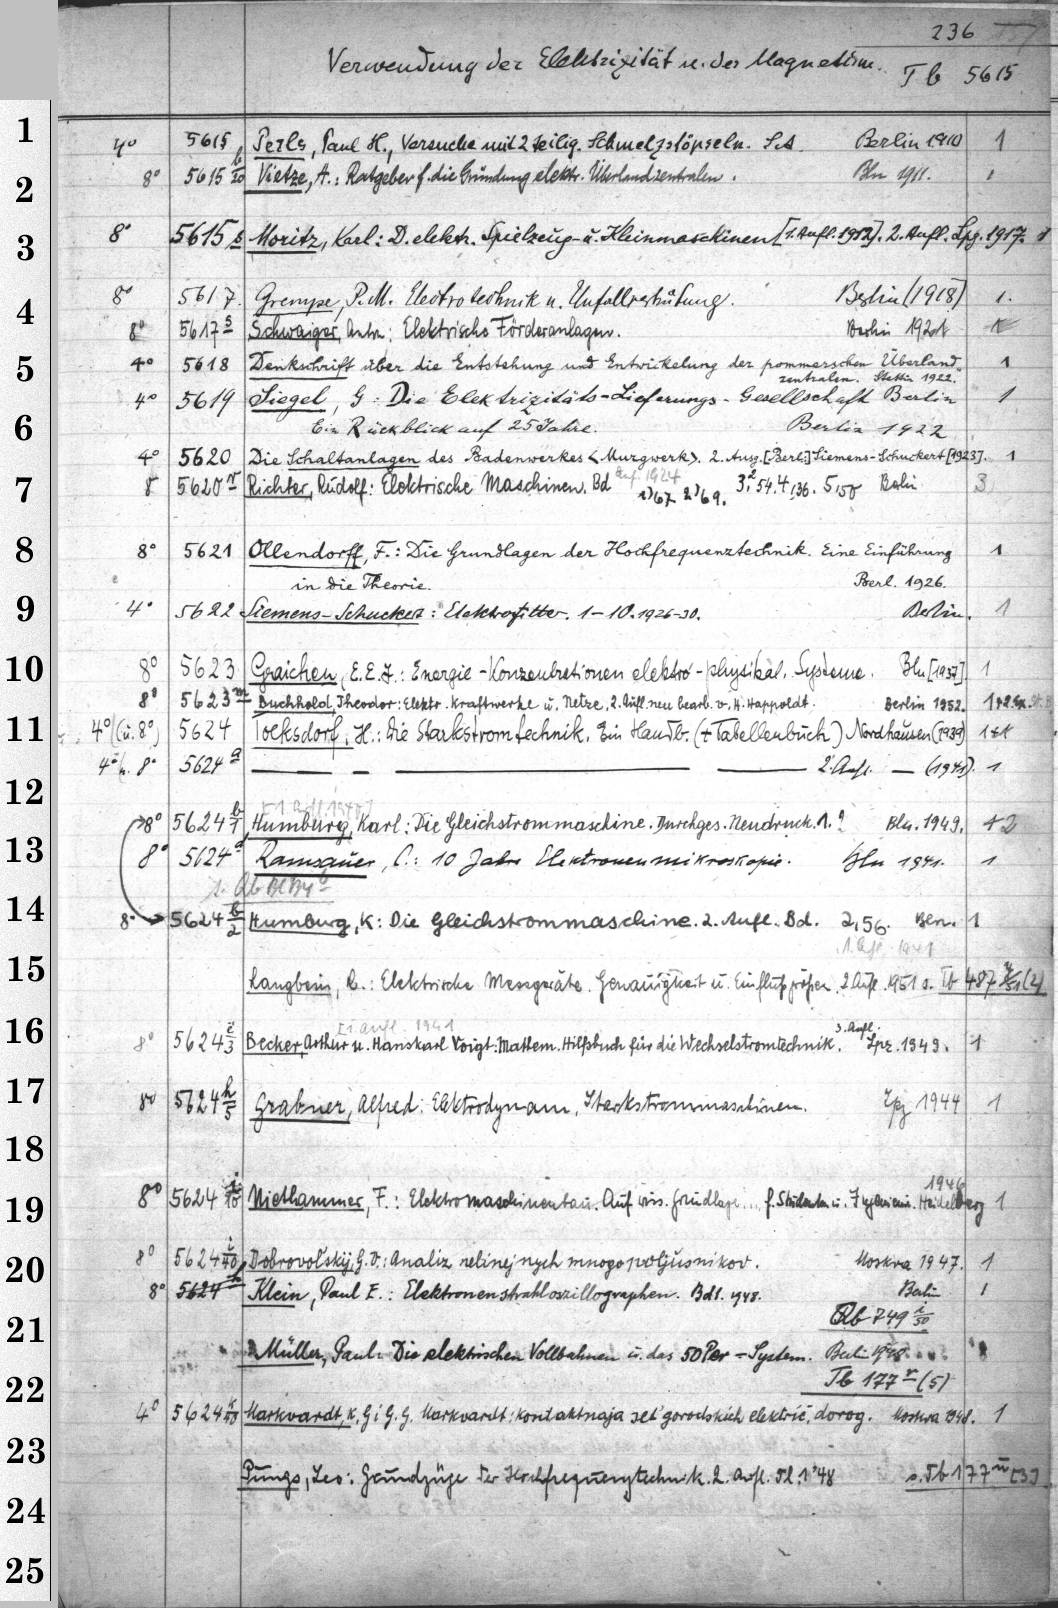 236
Verwendung der Elektrizität u. des Magnetism. Tb 5615
1
4° 5615 Perls, Paul H., Versuche mit 2 teilig. Schmelzstöpseln. S.A. Berlin 1910 1
8° 5615 b/20 Vietze, A.: Ratgeber f. die Gründung elektr. Überlandzentralen. Bln 1911. 1
2
3
8° 5615 s Moritz, Karl: D. elektr. Spielzeug- u. Kleinmaschinen [1. Aufl. 1912]. 2. Aufl. Lpg. 1917. 1
4
8° 5617. Grempe, P. M. Electrotechnik u. Unfallverhütung. Berlin (1918) 1.
8° 5617 s Schwaiger, Anton: Elektrische Förderanlagen. Berlin 1921
5
4° 5618 Denkschrift über die Entstehung und Entwickelung der pommerschen Überland-
zentralen. Stettin 1922. 1
4° 5619 Siegel, G: Die Elektrizitäts-Lieferungs-Gesellschaft Berlin 1
6
Ein Rückblick auf 25 Jahre. Berlin 1922
4° 5620 Die Schaltanlagen des Badenwerkes <Murgwerk>. 2. Ausg. [Berl.] Siemens-Schuckert [1923]. 1
7
8° 5620 r Richter, Rudolf: Elektrische Maschinen. Bd 1)67 2)69. 3,²54. 4,36. 5,50 Berlin 3
Auf. 1924
8
8° 5621 Ollendorff, F.: Die Grundlagen der Hochfrequenztechnik. Eine Einführung 1
in die Theorie. Berl. 1926.
9
4° 5622 Siemens-Schuckert: Elektrofilter. 1-10. 1926-30. Berlin. 1
10
8° 5623 Graichen, E. E. F.: Energie-Konzentrationen elektro-physikal. Systeme. Bln [1937] 1
8° 5623 m Buchhold, Theodor: Elektr. Kraftwerke u. Netze, 2. Aufl. neu bearb. v. H. Happoldt. Berlin 1952. 1+2.Ex.
11
4° (u. 8°) 5624 Tocksdorf, H.: Die Starkstromtechnik. Ein Handb. (+ Tabellenbuch) Nordhausen (1939) 1+K
4° u. 8° 5624 a — — — — 2. Aufl. — (1941). 1
12
[1. Aufl. 1940]
8° 5624 b/1 Humburg, Karl: Die Gleichstrommaschine. Durchges. Neudruck. 1. Bln. 1949. +2
13
8° 5624 a Ramsauer, C.: 10 Jahre Elektronenmikroskopie. Bln 1941. 1
14
8° 5624 b/2 Humburg, K: Die Gleichstrommaschine. 2. Aufl. Bd. 2, 56. Bln. 1
1. Aufl. 1941
15
Langbein, R.: Elektrische Messgeräte. Genauigkeit u. Einflußgrößen. 2. Aufl. 1951 s. Tb 487 (2)
16
[1. Aufl. 1941
3. Aufl.
8° 5624 i/3 Becker, Arthur u. Hanskarl Voigt: Mathem. Hilfsbuch für die Wechselstromtechnik. Lpz. 1949. 1
17
8° 5624 h/5 Grabner, Alfred: Elektrodynam. Starkstrommaschinen. Lpz 1944 1
18
19
1946
8° 5624 i/10 Niethammer, F.: Elektromaschinenbau. Auf wis. Grundlage... f. Studenten u. Ingenieure. Heidelberg 1
20
8° 5624 i/40 Dobrovol'skij, G. V.: Analiz nelinejnych mnogopoljusnikov. Moskva 1947. 1
8° 5624 Klein, Paul E.: Elektronenstrahloszillographen. Bd 1. 1948. Berlin 1
21
Qb 749 i/50
Müller, Paul: Die elektrischen Vollbahnen u. das 50 Per-System. Berlin 1948
22
Tb 177 r (5)
4° 5624 Markvardt, K. G. i G. G. Markvardt: Kontaktnaja set' gorodskich električ. dorog. Moskva 1948. 1
23
Pungs, Leo: Grundzüge der Hochfrequenztechnik. 2. Aufl. Tl. 1. '48 s. Tb 177 u [3]
24
25